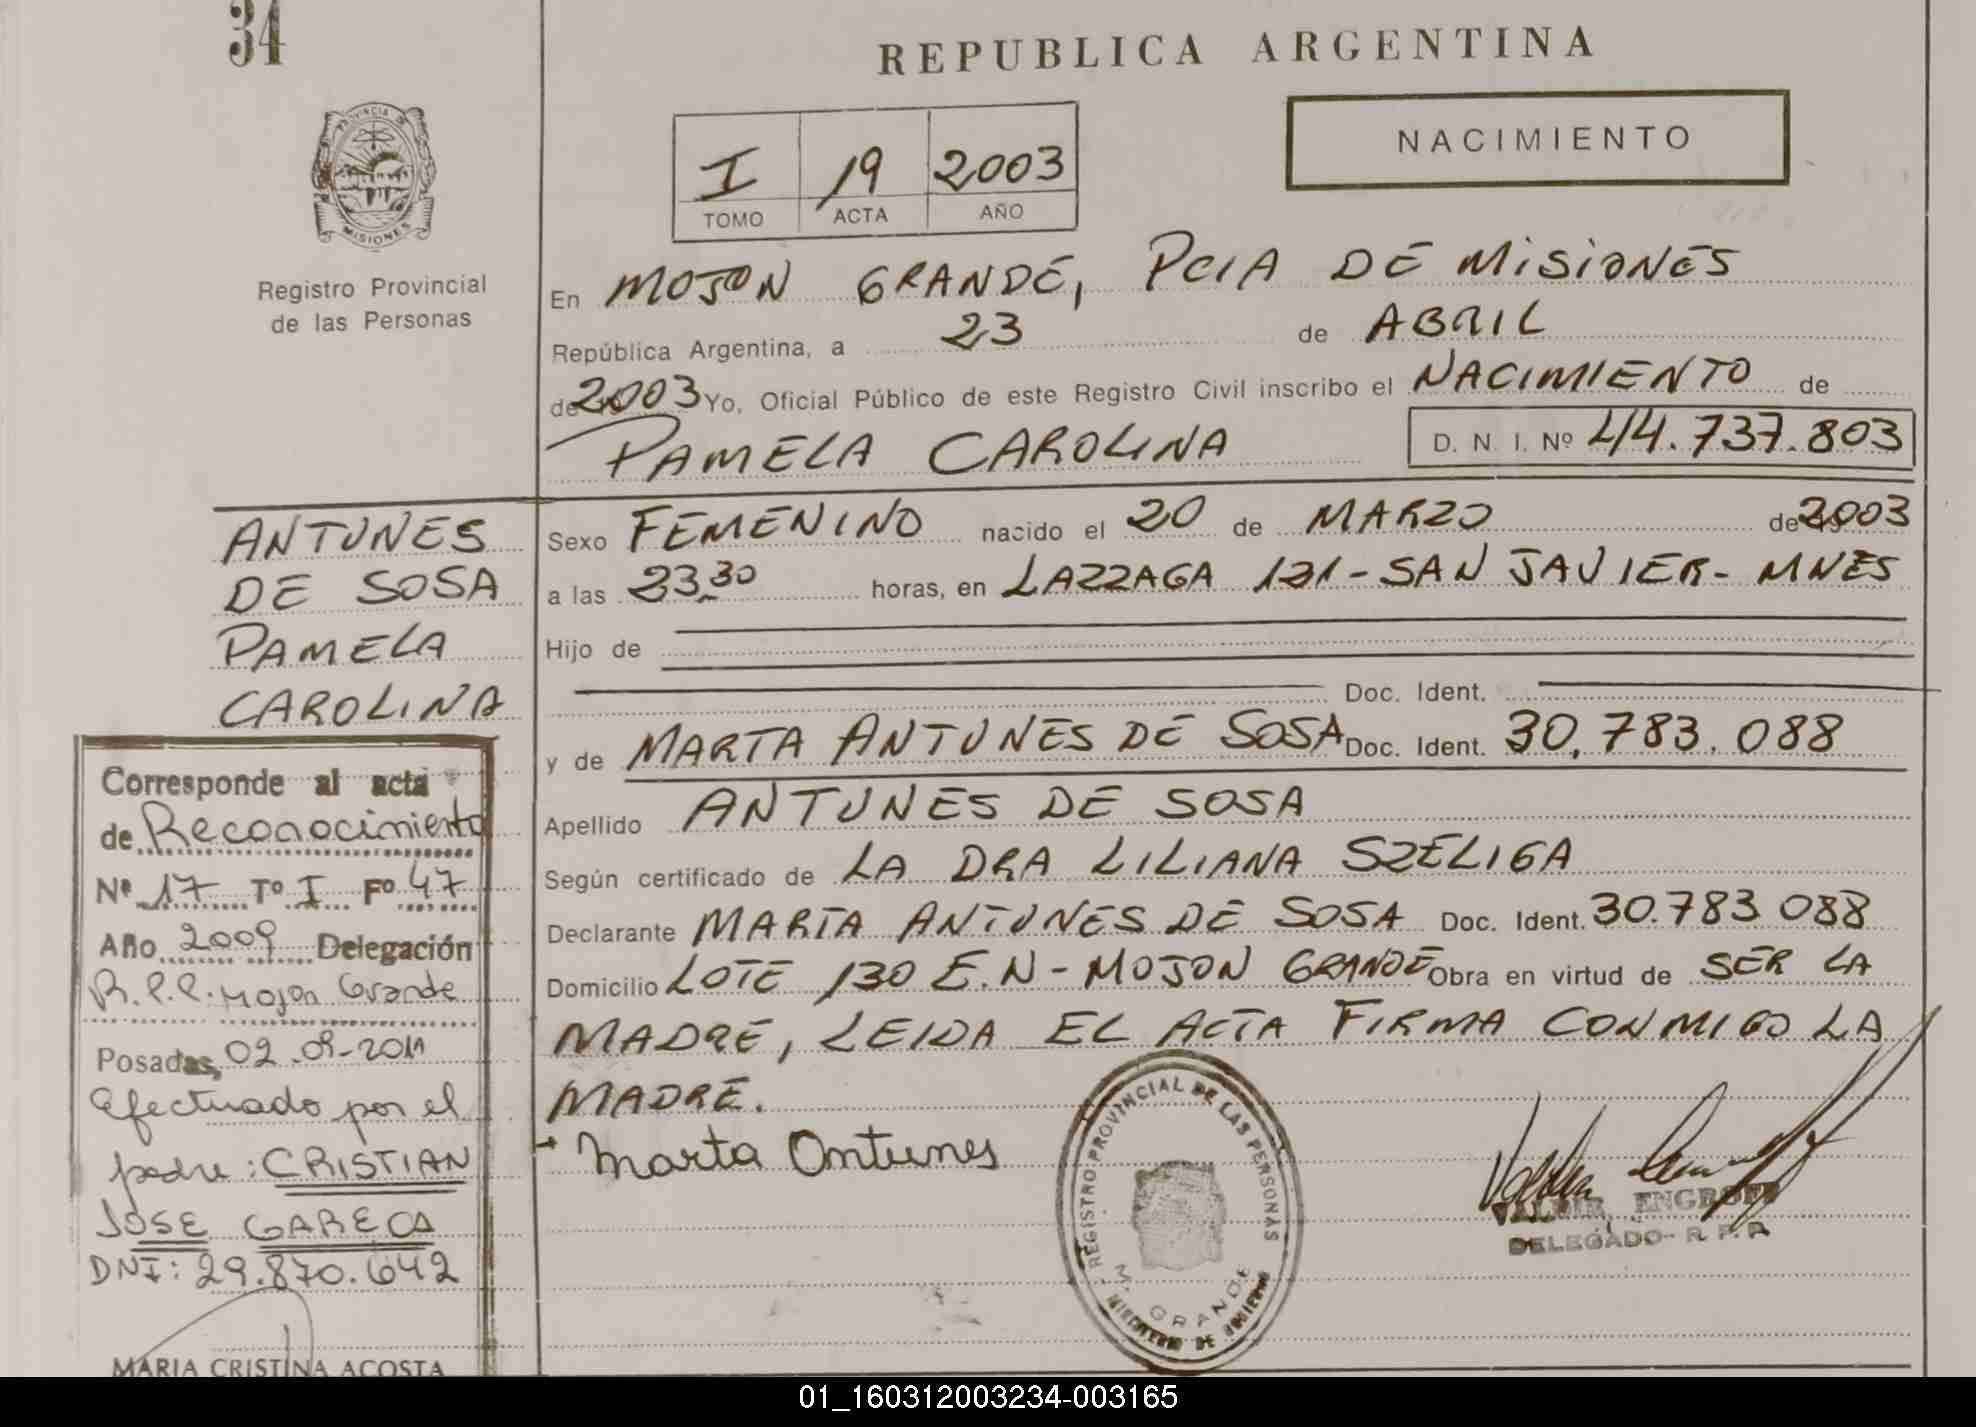 34
REPUBLICA ARGENTINA
PROVINCIA DE
MISIONES
Registro Provincial
de las Personas
NACIMIENTO
I 19 2003
TOMO ACTA AÑO
En MOJON GRANDE, PCIA DE MISIONES
República Argentina, a 23 de ABRIL
de 2003 Yo, Oficial Público de este Registro Civil inscribo el NACIMIENTO de
PAMELA CAROLINA D. N. I. Nº 44.737.803
ANTUNES
DE SOSA
PAMELA
CAROLINA
Sexo FEMENINO nacido el 20 de MARZO de 2003
a las 23.30 horas, en LAZZAGA 131-SAN JAVIER- MNES
Hijo de
Doc. Ident.
y de MARTA ANTUNES DE SOSA Doc. Ident. 30.783.088
Apellido ANTUNES DE SOSA
Según certificado de LA DRA LILIANA SZELIGA
Declarante MARTA ANTUNES DE SOSA Doc. Ident. 30.783.088
Domicilio LOTE 130 E.N-MOJON GRANDE Obra en virtud de SER LA
MADRE, LEIDA EL ACTA FIRMA CONMIGO LA
MADRE.
Marta Ontunes
REGISTRO PROVINCIAL DE LAS PERSONAS
M. GRANDE
MINISTERIO DE GOBIERNO
ENGROFF
DELEGADO- R. P. P.
Corresponde al acta
de Reconocimiento
Nº 17 Tº I Fº 47
Año 2009 Delegación
R.P.P. Mojon Grande
Posadas, 02-09-2011
Efectuado por el
padre: CRISTIAN
JOSE GARECA
DNI: 29.870.642
MARIA CRISTINA ACOSTA
01_160312003234-003165